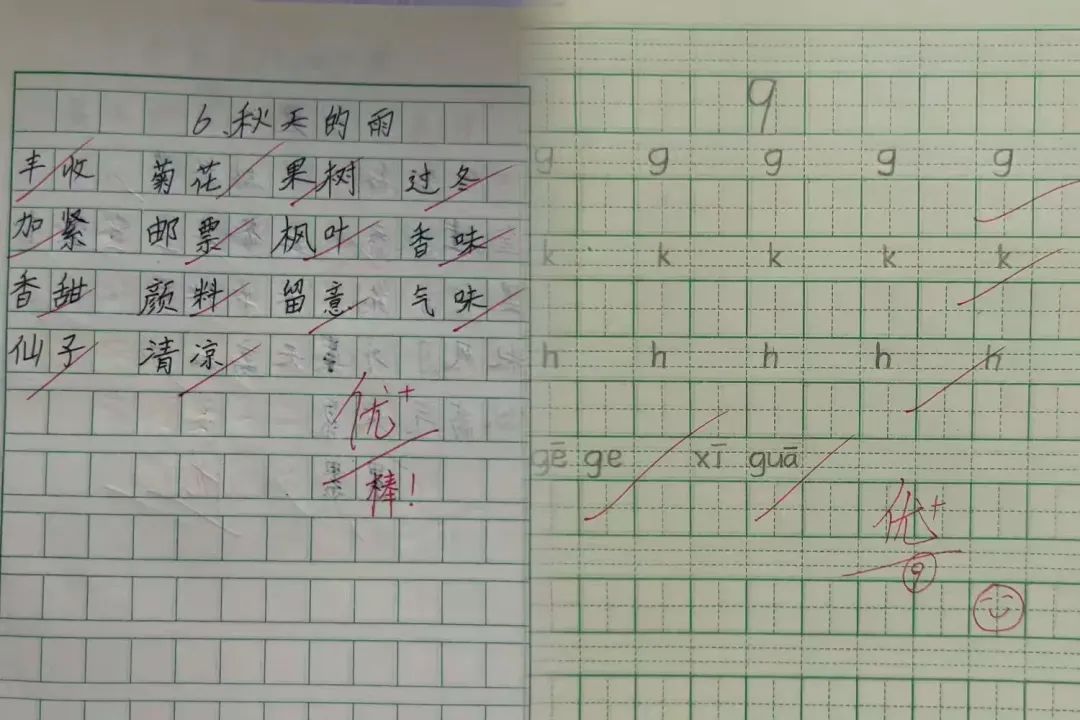 6、秋天的雨
丰收 菊花 果树 过冬
加紧 邮票 枫叶 香味
香甜 颜料 留意 气味
仙子 清凉
优+
棒!
9
g g g g g
k k k k k
h h h h h
gē ge xī guā
优+
9